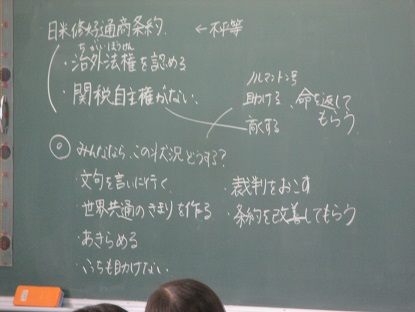 日米修好通商条約. ← 不平等
ちがいほうけん
・治外法権を認める
・関税自主権がない.
ノルマントン号
助ける、命を返して
もらう.
◎ みんななら、この状況どうする?
・文句を言いに行く
・世界共通のきまりを作る
・あきらめる
・こっちも助けない.
・裁判をおこす
・条約を改善してもらう